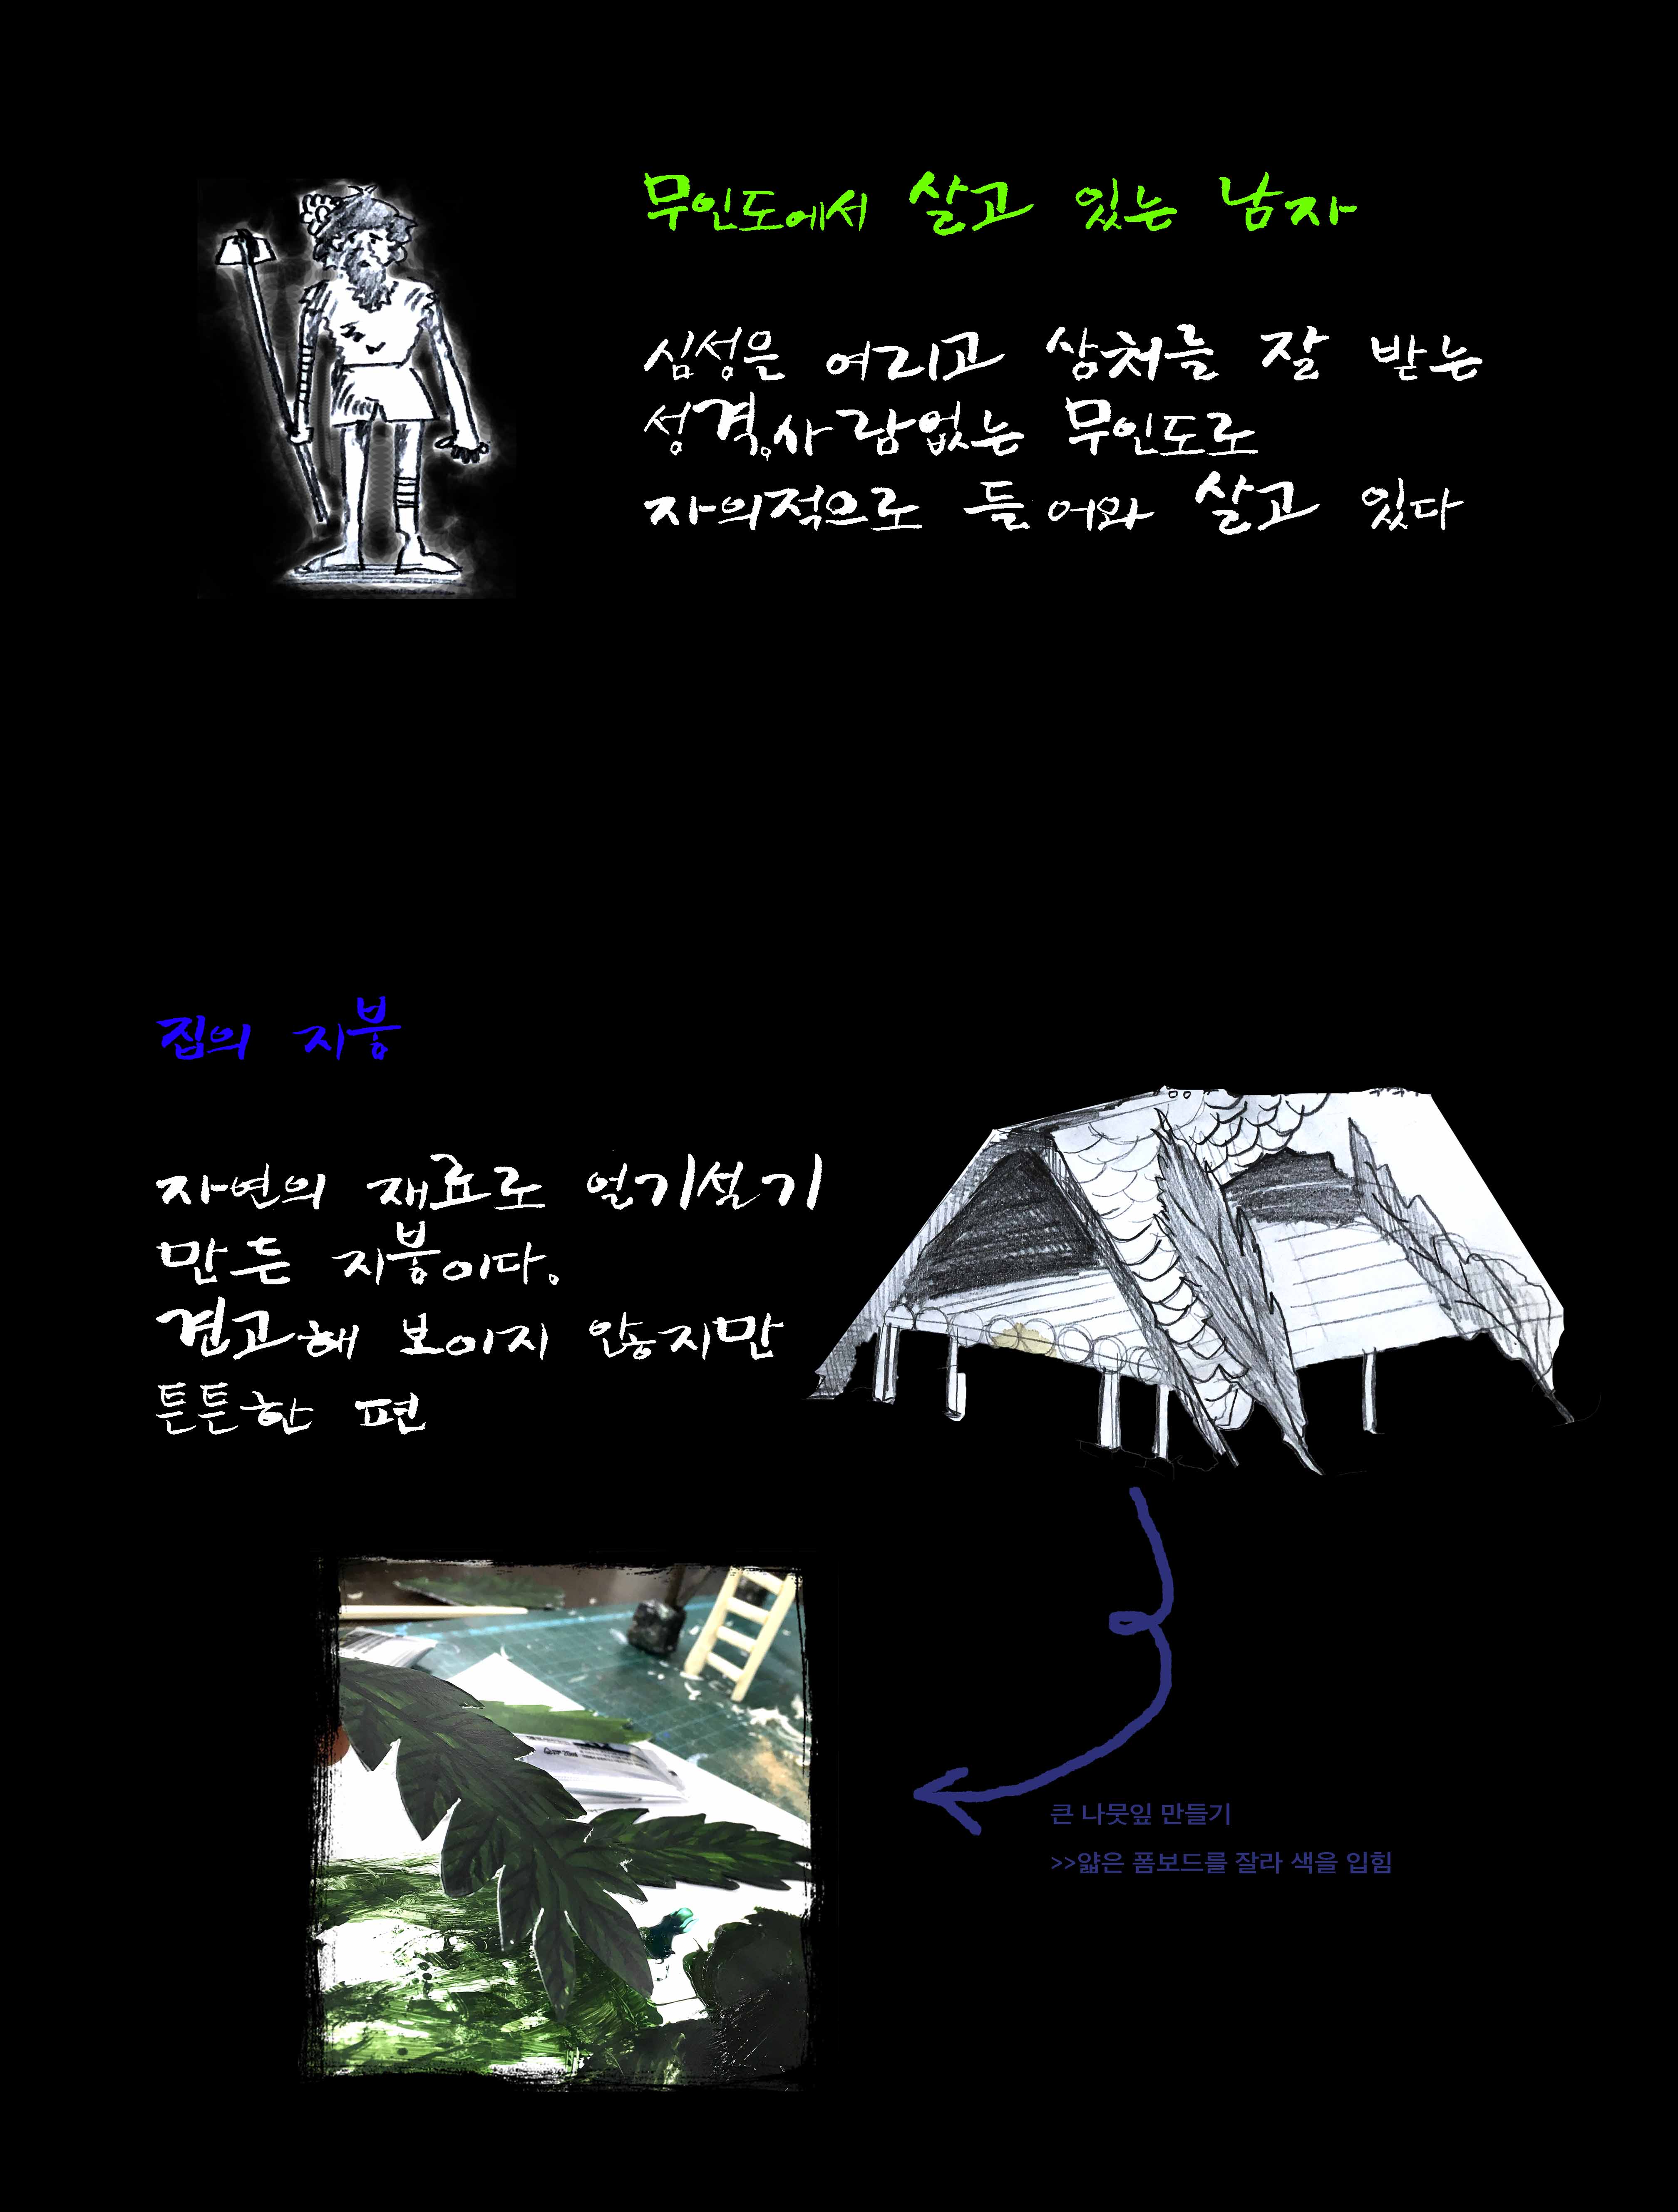 무인도에서 살고 있는 남자
심성은 여리고 상처를 잘 받는
성격.사람없는 무인도로
자의적으로 들어와 살고 있다
집의 지붕
자연의 재료로 얼기설기
만든 지붕이다.
견고해 보이지 않지만
튼튼한 편
큰 나뭇잎 만들기
>>얇은 폼보드를 잘라 색을 입힘